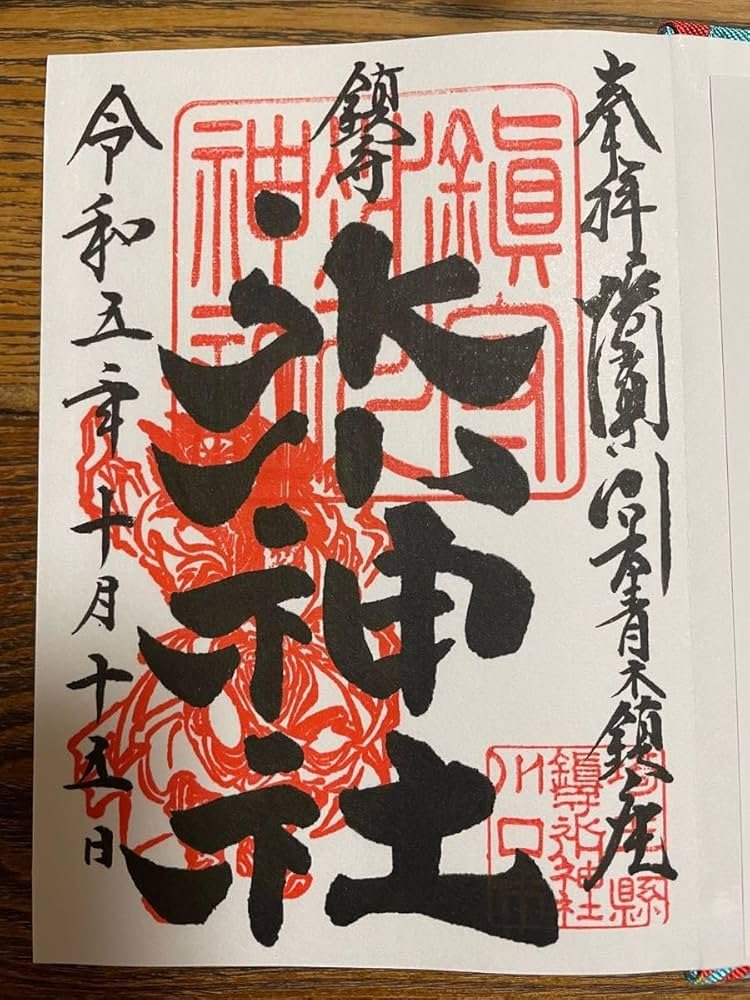 奉拝 川口市青木鎮座
鎮守
氷川神社
令和五年十月十五日
鎮守
氷川
神社
埼玉縣
鎮守氷川神社
川口市